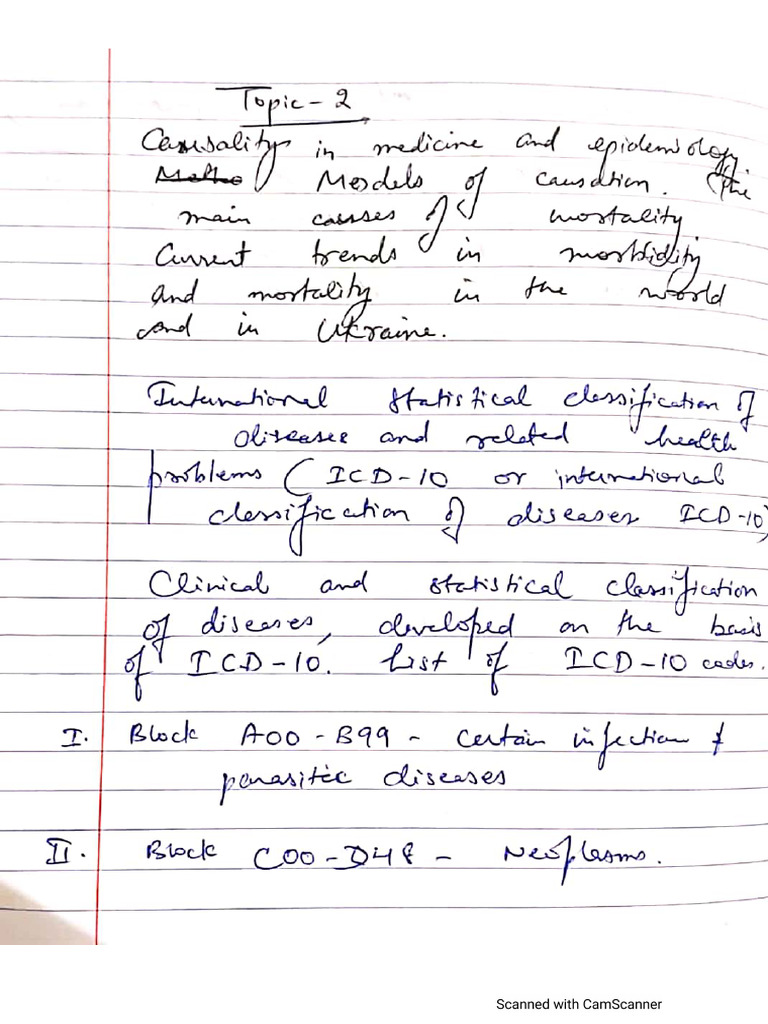 Topic - 2
Causality in medicine and epidemiology.
Models of causation. The
main causes of mortality.
Current trends in morbidity
and mortality in the world
and in Ukraine.
International statistical classification of
diseases and related health
problems (ICD-10 or international
classification of diseases ICD-10)
Clinical and statistical classification
of diseases, developed on the basis
of ICD-10. List of ICD-10 codes.
I. Block A00 - B99 - Certain infection &
parasitic diseases
II. Block C00 - D48 - Neoplasms.
Scanned with CamScanner